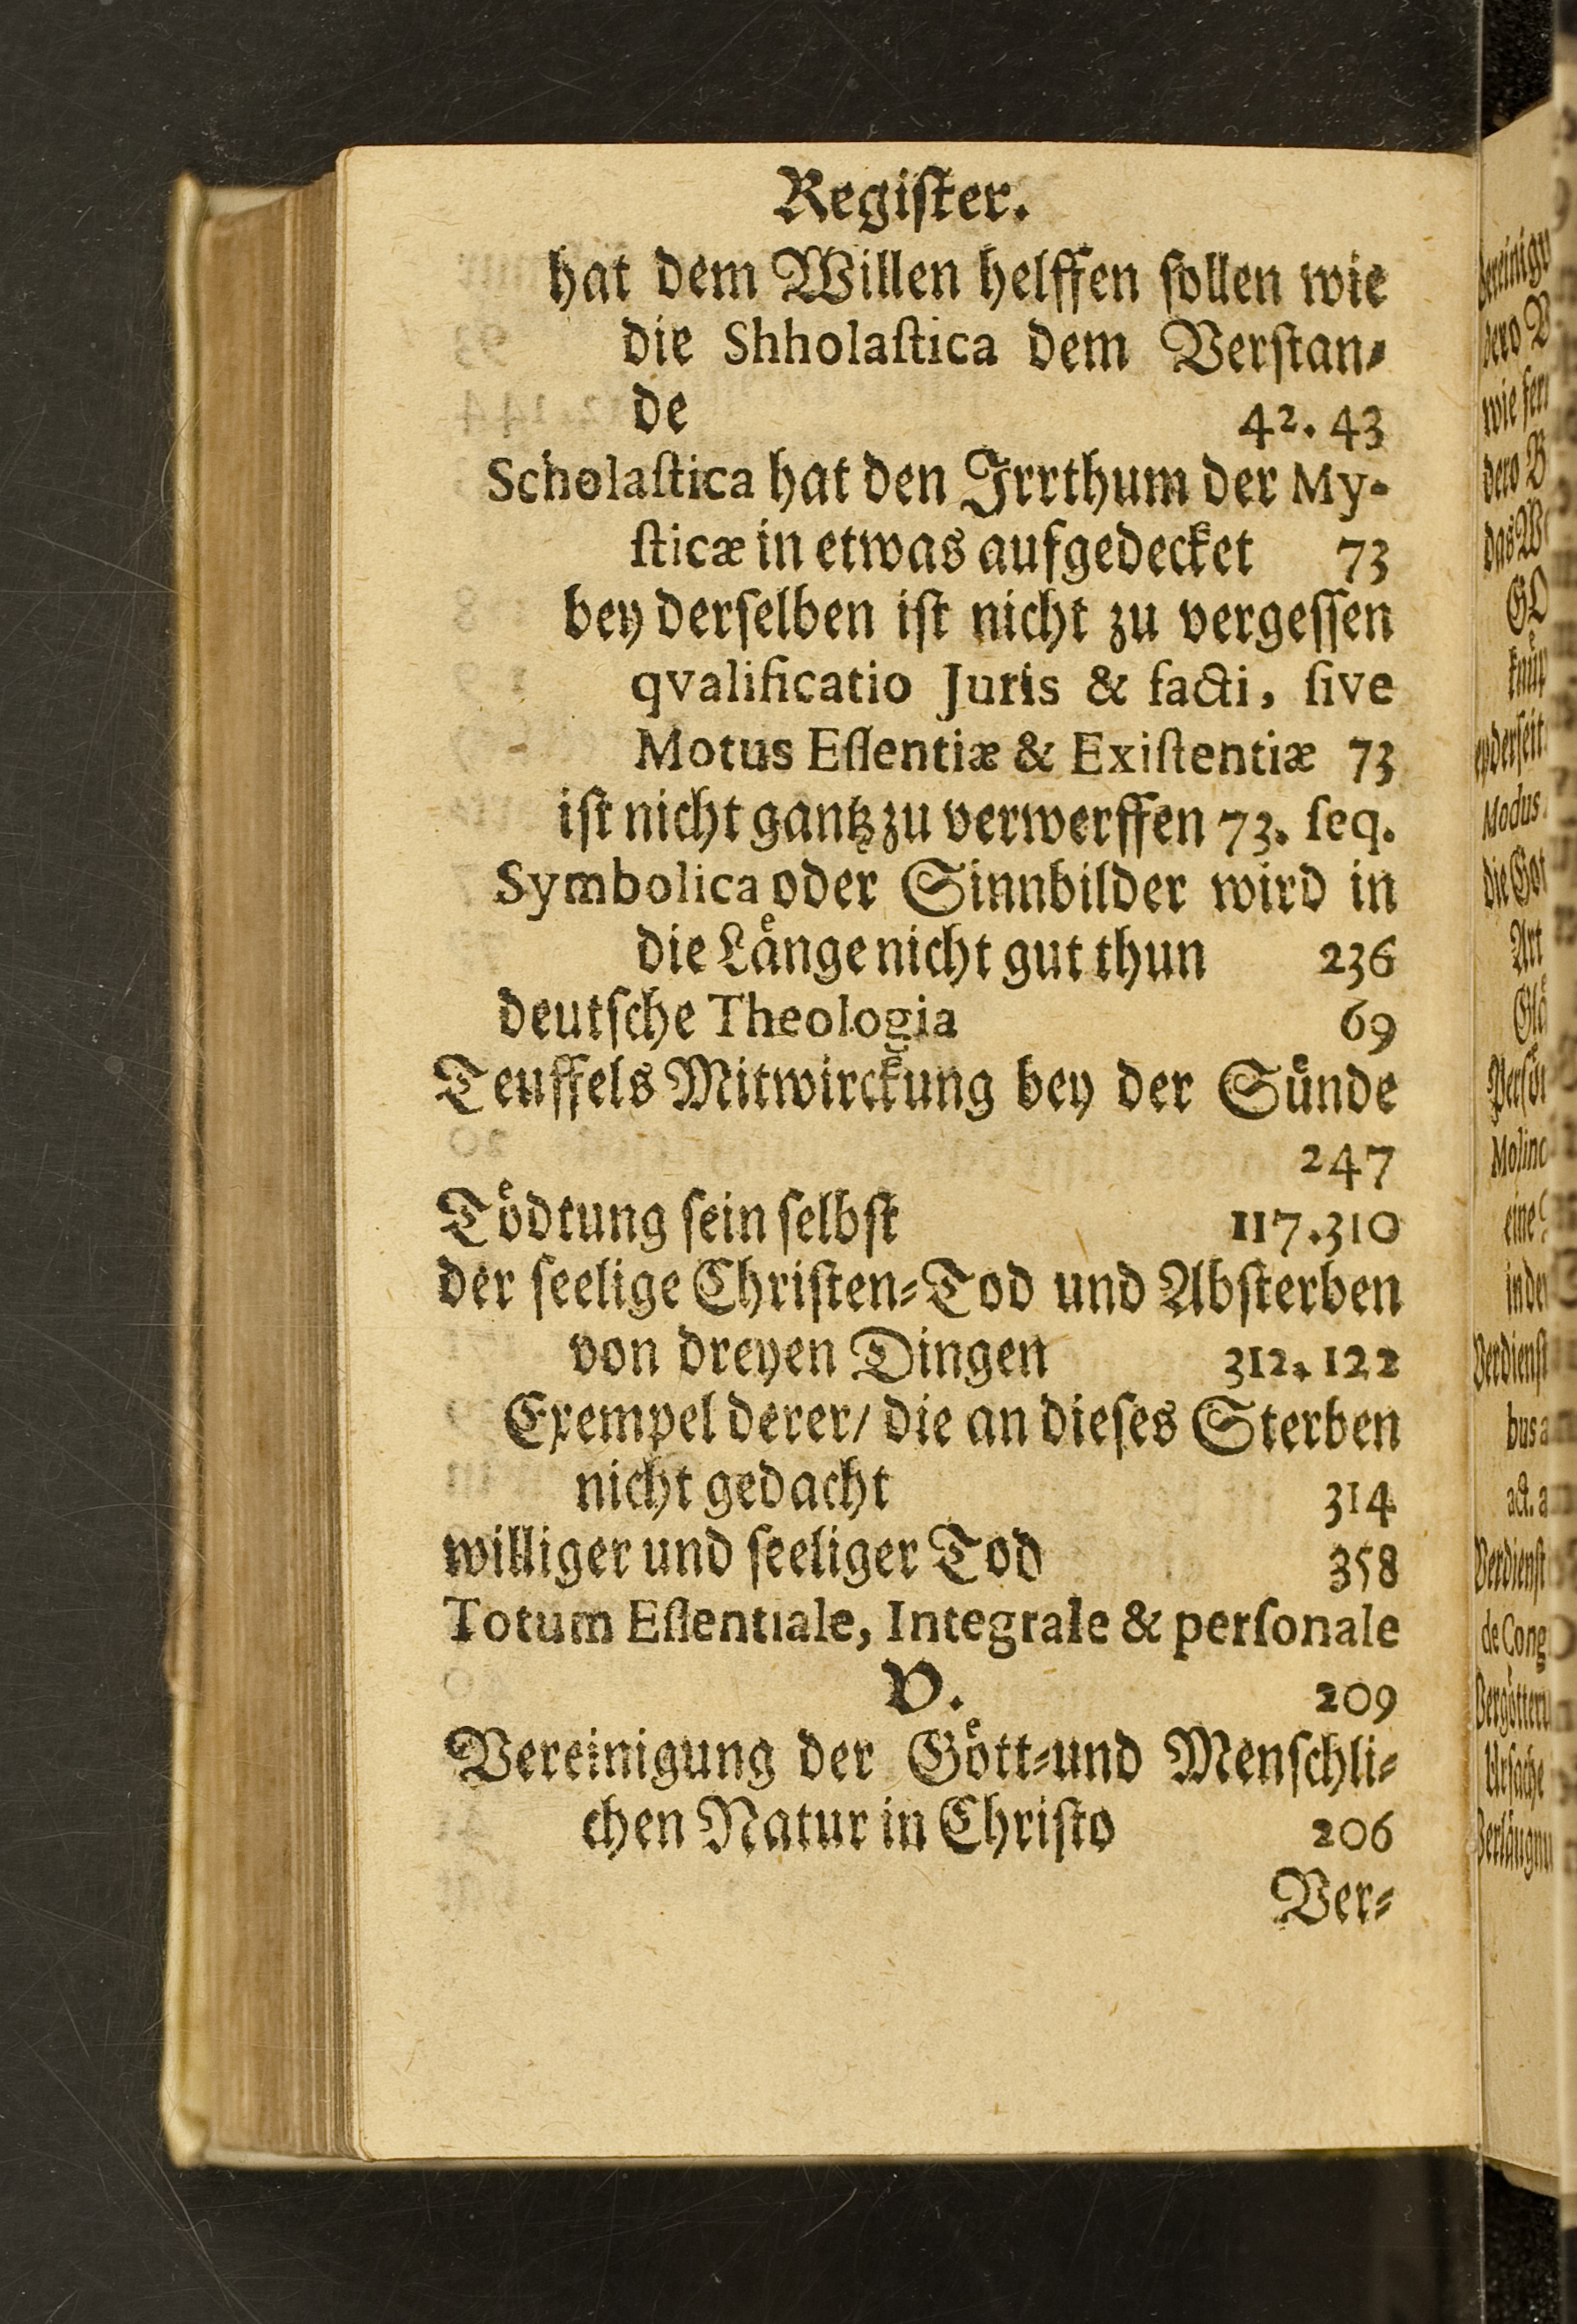 Regiſter.
hat dem Willen helffen ſollen wie
die Shholaſtica dem Verſtan⸗
de 42. 43
Scholaſtica hat den Irrthum der My-
ſticæ in etwas aufgedecket 73
bey derſelben iſt nicht zu vergeſſen
qvalificatio Juris & facti, ſive
Motus Eſſentiæ & Exiſtentiæ 73
iſt nicht gantz zu verwerffen 73. ſeq.
Symbolica oder Sinnbilder wird in
die Laͤnge nicht gut thun 236
deutſche Theologia 69
Teuffels Mitwirckung bey der Suͤnde
247
Toͤdtung ſein ſelbſt 117.310
der ſeelige Chriſten⸗Tod und Abſterben
von dreyen Dingen 312. 122
Exempel derer/ die an dieſes Sterben
nicht gedacht 314
williger und ſeeliger Tod 358
Totum Eſſentiale, Integrale & perſonale
V. 209
Vereinigung der Goͤtt⸗und Menſchli⸗
chen Natur in Chriſto 206
Ver⸗